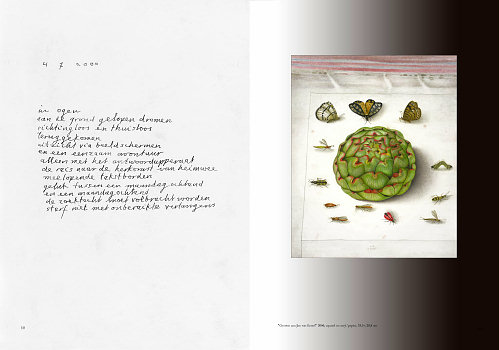 4 7 2000
in ogen
aan de grond gelopen dromen
richtingloos en thuisloos
teruggekomen
uitzicht via beeldschermen
en een eenzaam avontuur
alleen met het antwoordapparaat
de reis naar de herkomst van heimwee
meelopende tekstborden
geluk tussen een maandagochtend
en een maandagochtend
de zoektocht moet volbracht worden
sterf niet met onbereikte verlangens